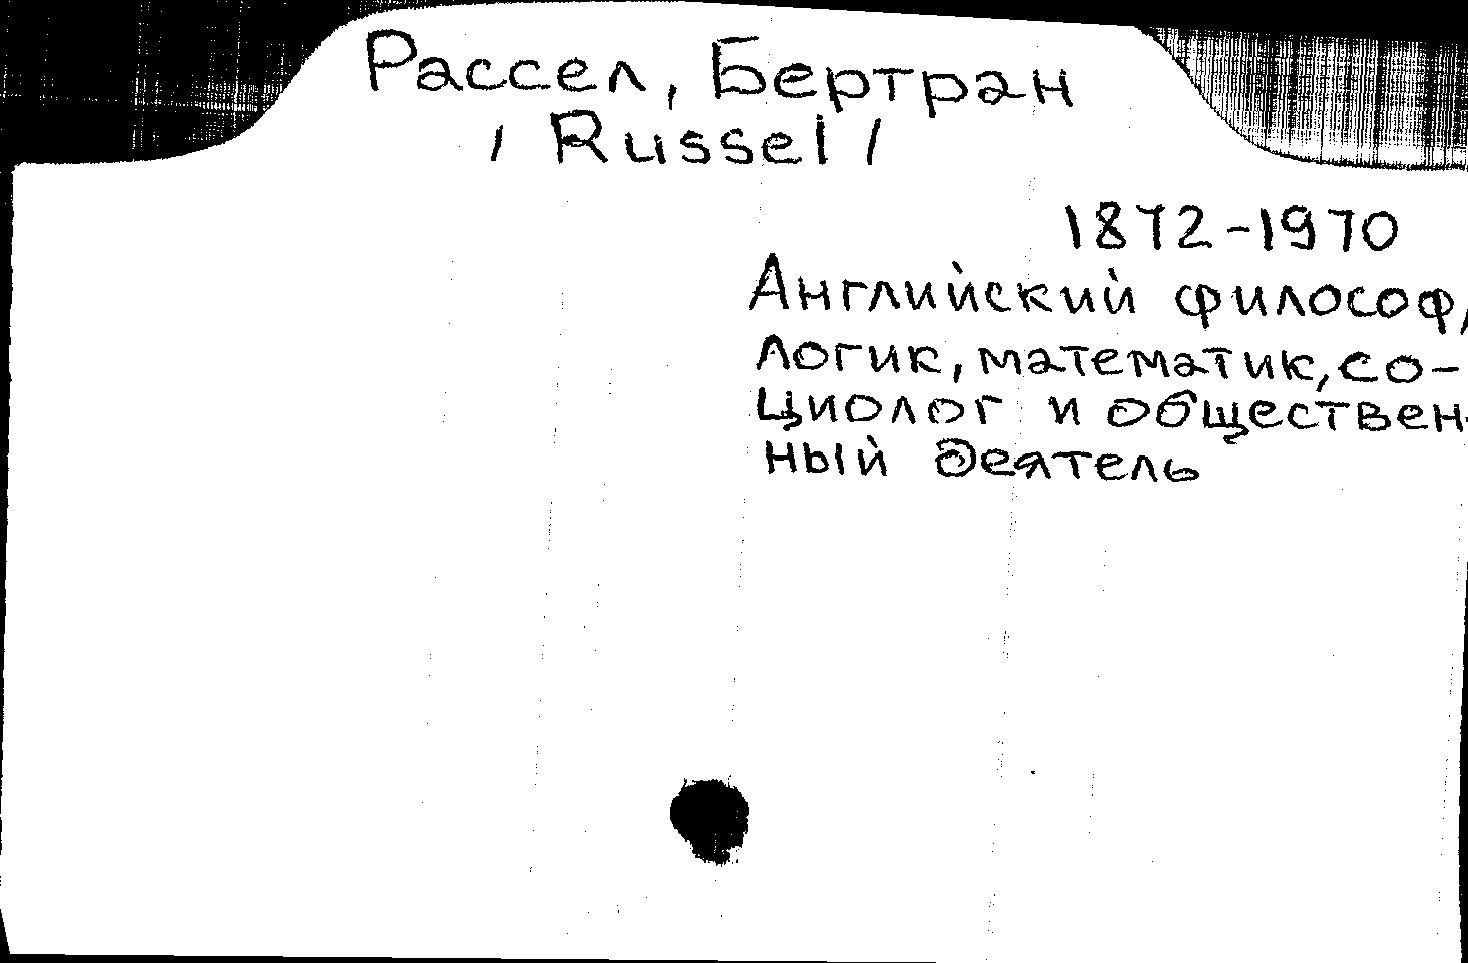 Рассел, Бертран
/ Russel /
1872-1970
Английский философ,
логик, математик, со-
циолог и обществен-
ный деятель